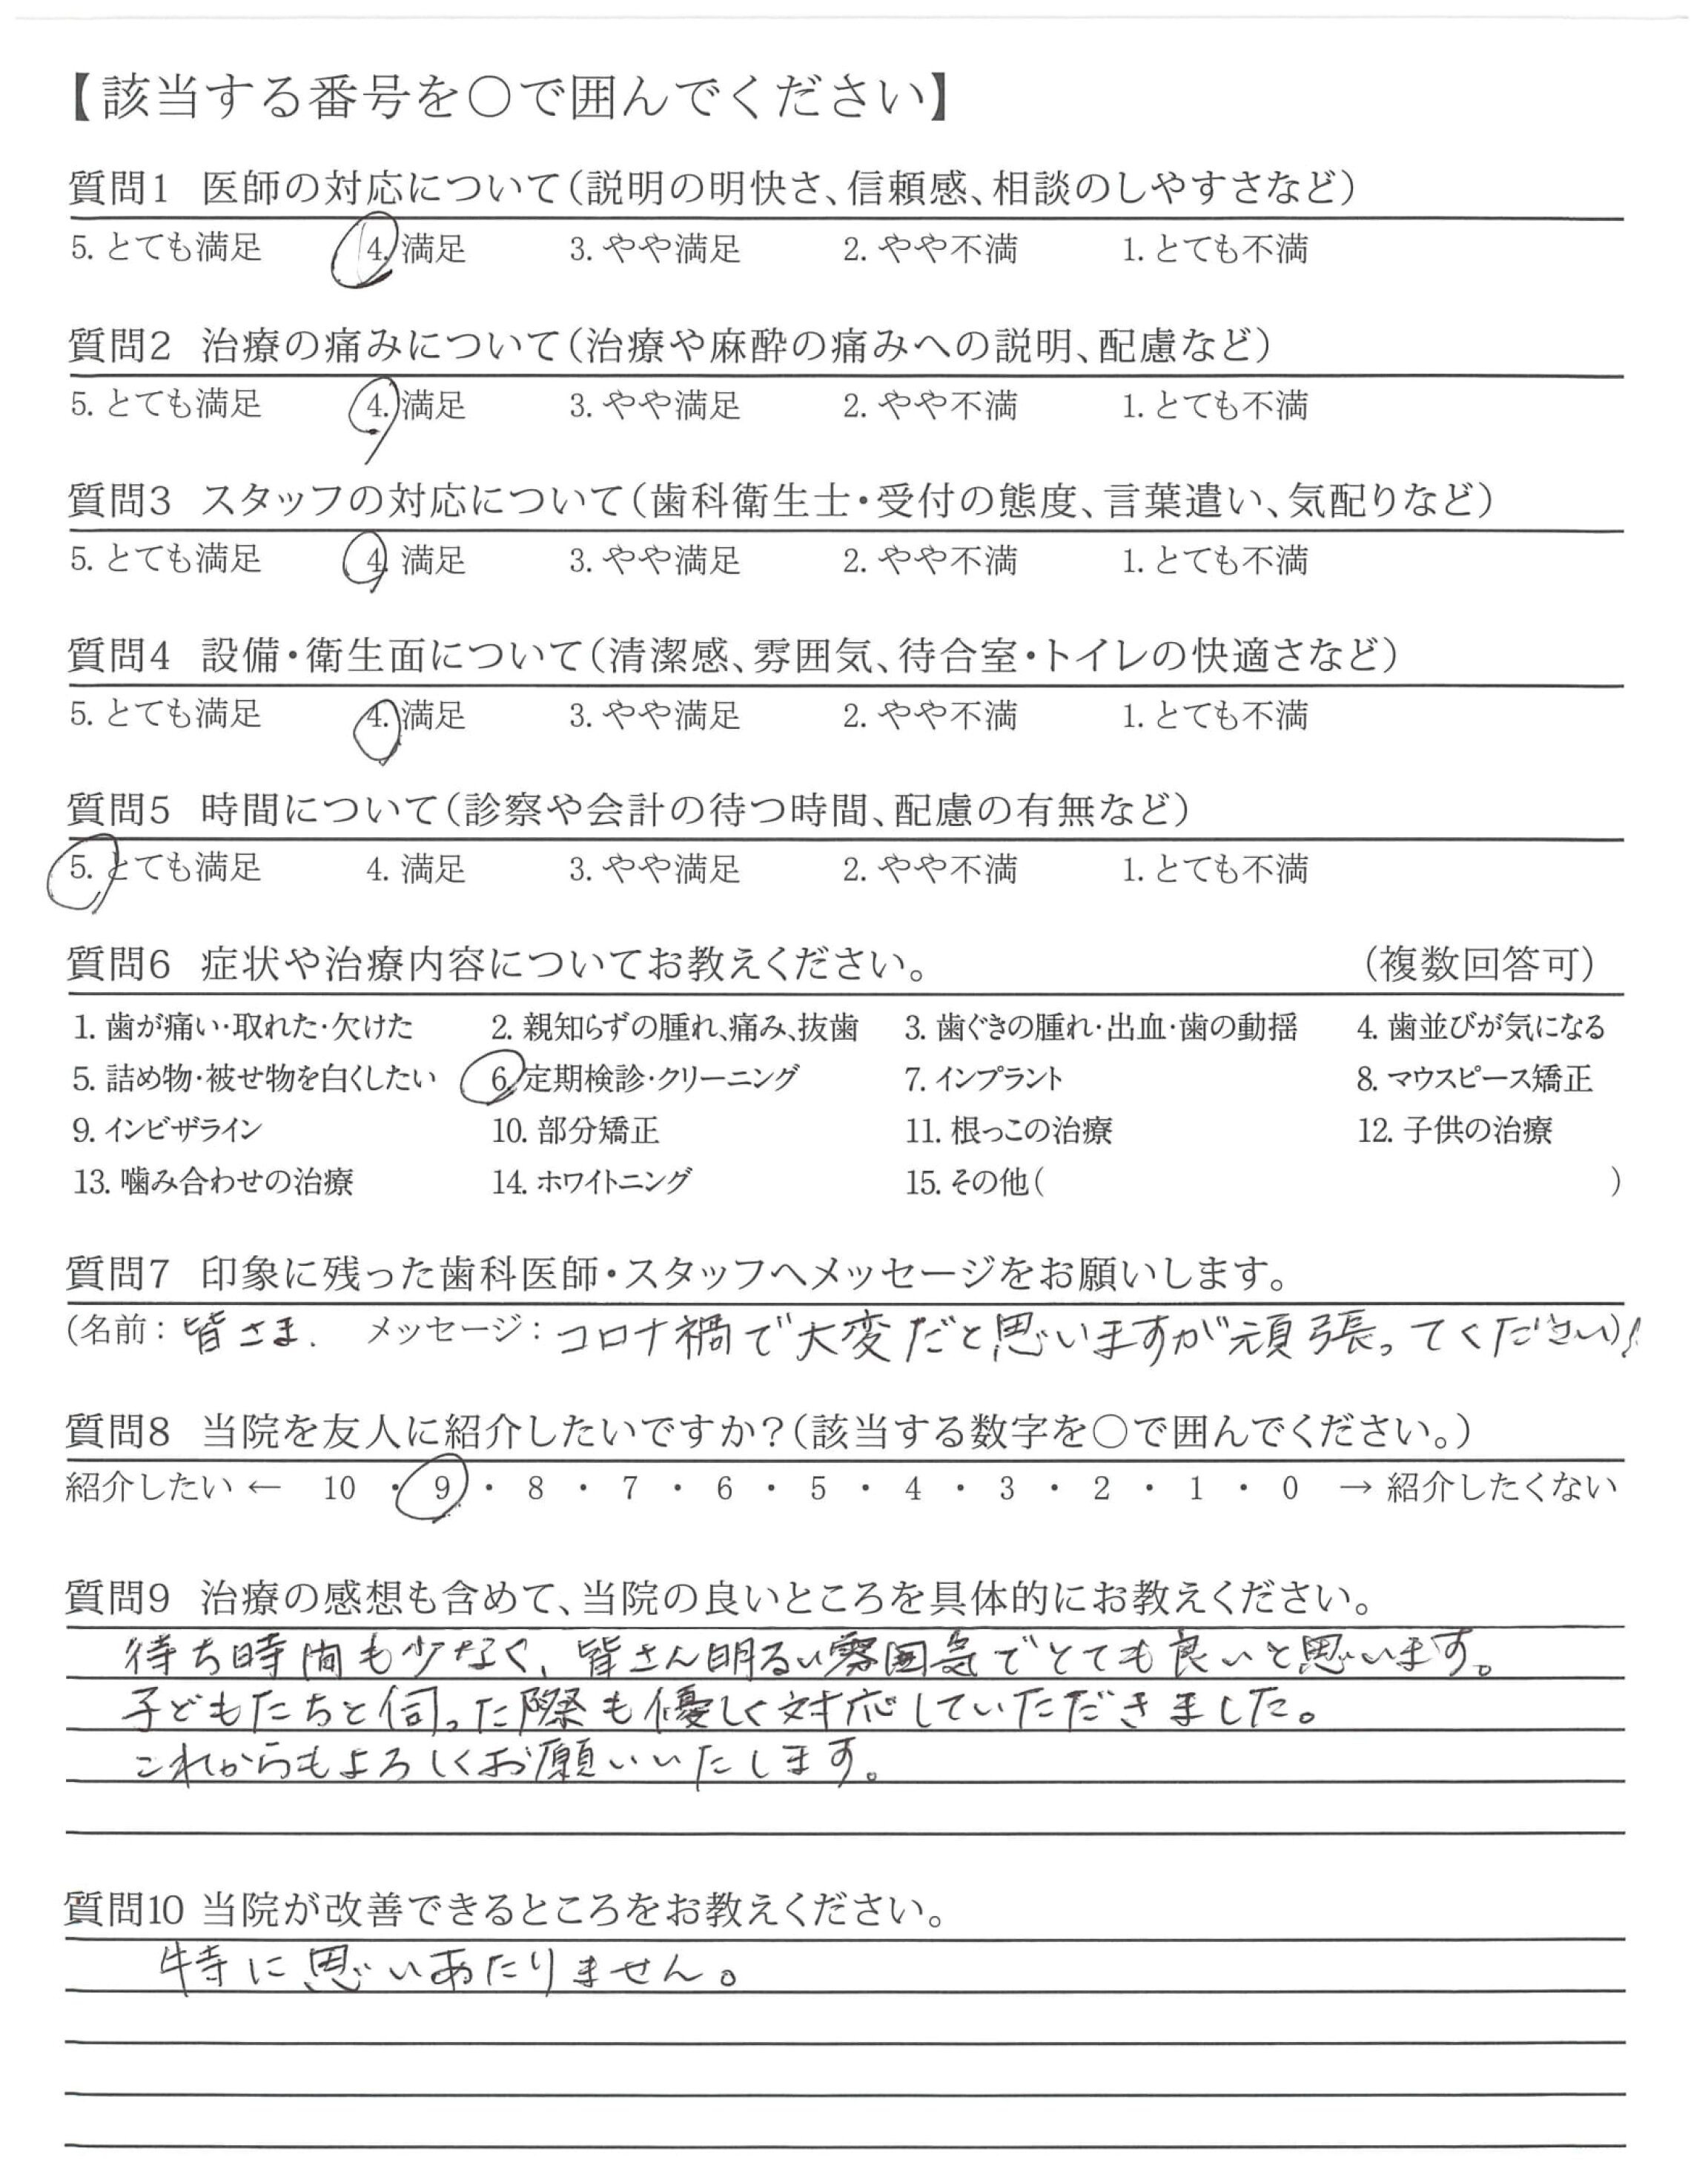 【該当する番号を○で囲んでください】
質問1 医師の対応について(説明の明快さ、信頼感、相談のしやすさなど)
5. とても満足 4. 満足 3. やや満足 2. やや不満 1. とても不満
質問2 治療の痛みについて(治療や麻酔の痛みへの説明、配慮など)
5. とても満足 4. 満足 3. やや満足 2. やや不満 1. とても不満
質問3 スタッフの対応について(歯科衛生士・受付の態度、言葉遣い、気配りなど)
5. とても満足 4. 満足 3. やや満足 2. やや不満 1. とても不満
質問4 設備・衛生面について(清潔感、雰囲気、待合室・トイレの快適さなど)
5. とても満足 4. 満足 3. やや満足 2. やや不満 1. とても不満
質問5 時間について(診察や会計の待つ時間、配慮の有無など)
5. とても満足 4. 満足 3. やや満足 2. やや不満 1. とても不満
質問6 症状や治療内容についてお教えください。 (複数回答可)
1. 歯が痛い・取れた・欠けた 2. 親知らずの腫れ、痛み、抜歯 3. 歯ぐきの腫れ・出血・歯の動揺 4. 歯並びが気になる
5. 詰め物・被せ物を白くしたい 6. 定期検診・クリーニング 7. インプラント 8. マウスピース矯正
9. インビザライン 10. 部分矯正 11. 根っこの治療 12. 子供の治療
13. 噛み合わせの治療 14. ホワイトニング 15. その他( )
質問7 印象に残った歯科医師・スタッフへメッセージをお願いします。
(名前: 皆さま. メッセージ: コロナ禍で大変だと思いますが頑張ってください)!
質問8 当院を友人に紹介したいですか?(該当する数字を○で囲んでください。)
紹介したい ← 10 ・ 9 ・ 8 ・ 7 ・ 6 ・ 5 ・ 4 ・ 3 ・ 2 ・ 1 ・ 0 → 紹介したくない
質問9 治療の感想も含めて、当院の良いところを具体的にお教えください。
待ち時間も少なく、皆さん明るい雰囲気でとても良いと思います。
子どもたちと伺った際も優しく対応していただきました。
これからもよろしくお願いいたします。
質問10 当院が改善できるところをお教えください。
特に思いあたりません。